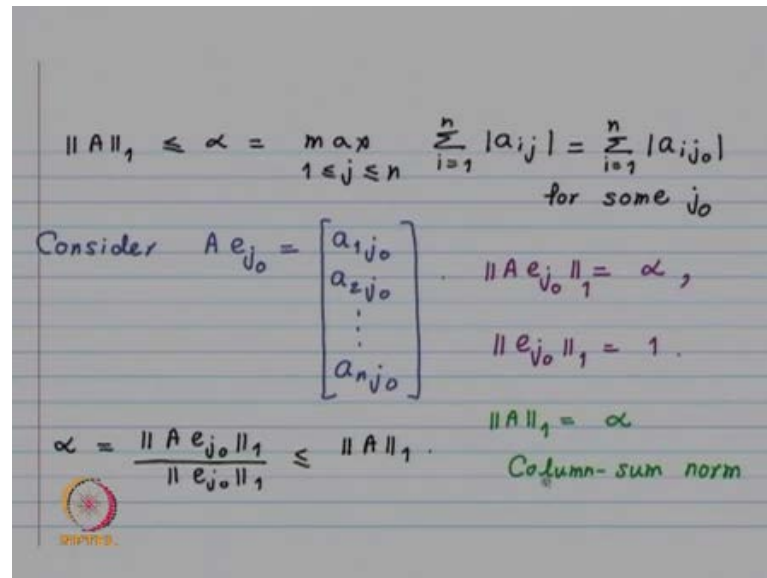 ‖A‖₁ ≤ α = max 1≤j≤n ∑ⁿᵢ₌₁ |aᵢⱼ| = ∑ⁿᵢ₌₁ |aᵢⱼ₀|
for some j₀
Consider A eⱼ₀ = [a₁ⱼ₀ a₂ⱼ₀ ⋮ aₙⱼ₀] . ‖A eⱼ₀‖₁ = α ,
‖eⱼ₀‖₁ = 1 .
α = ‖A eⱼ₀‖₁ / ‖eⱼ₀‖₁ ≤ ‖A‖₁ .
‖A‖₁ = α
Column-sum norm